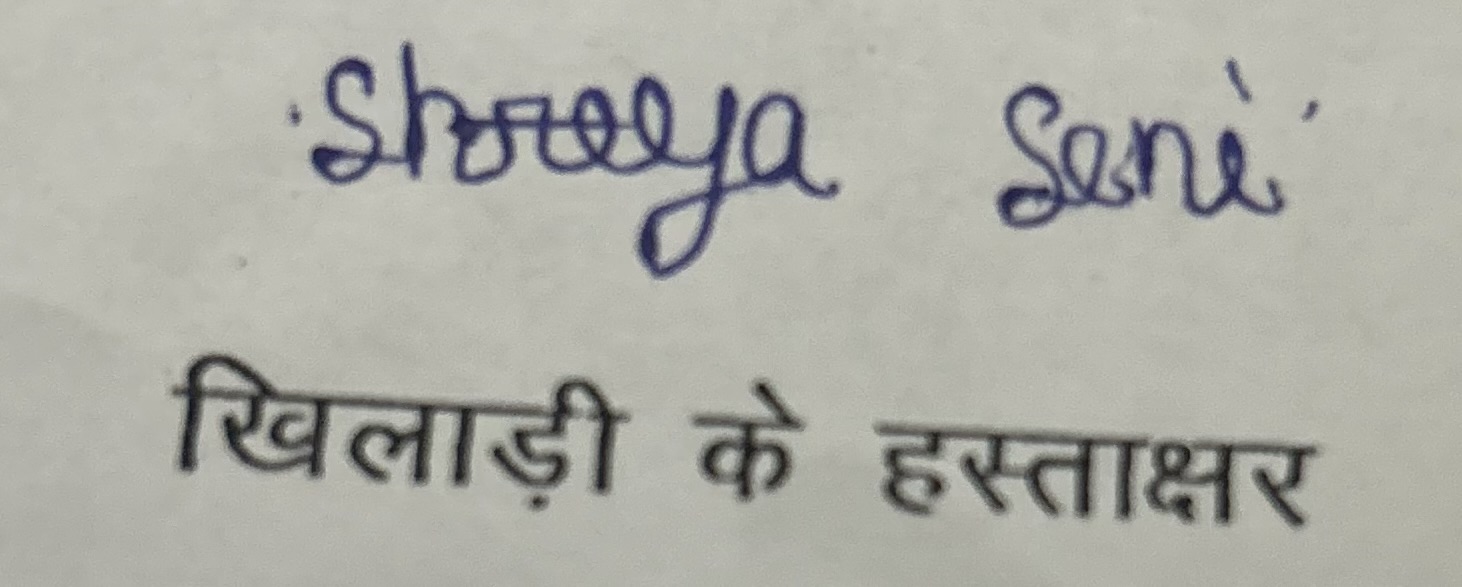 Shreeya Soni
खिलाड़ी के हस्ताक्षर